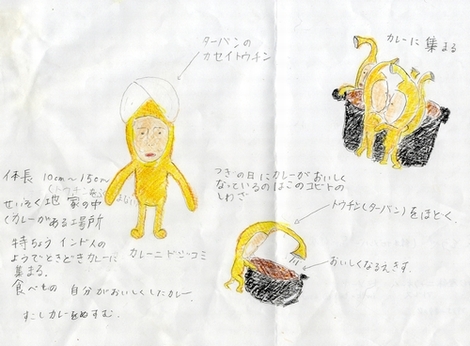 ターバンの
カセイトウチン
カレーに集まる
体長 10cm～15cm
(トウチンをふくまない)
せいそく地 家の中
(カレーがある場所
特ちょう インド人の
ようでときどきカレーに
集まる。
食べもの 自分がおいしくしたカレー
すこしカレーをぬすむ。
カレーニドジーコミ
つぎの日にカレーがおいしく
なっているのはこのコビトの
しわざ
トウチン(ターバン)をほどく。
おいしくなるえきす。